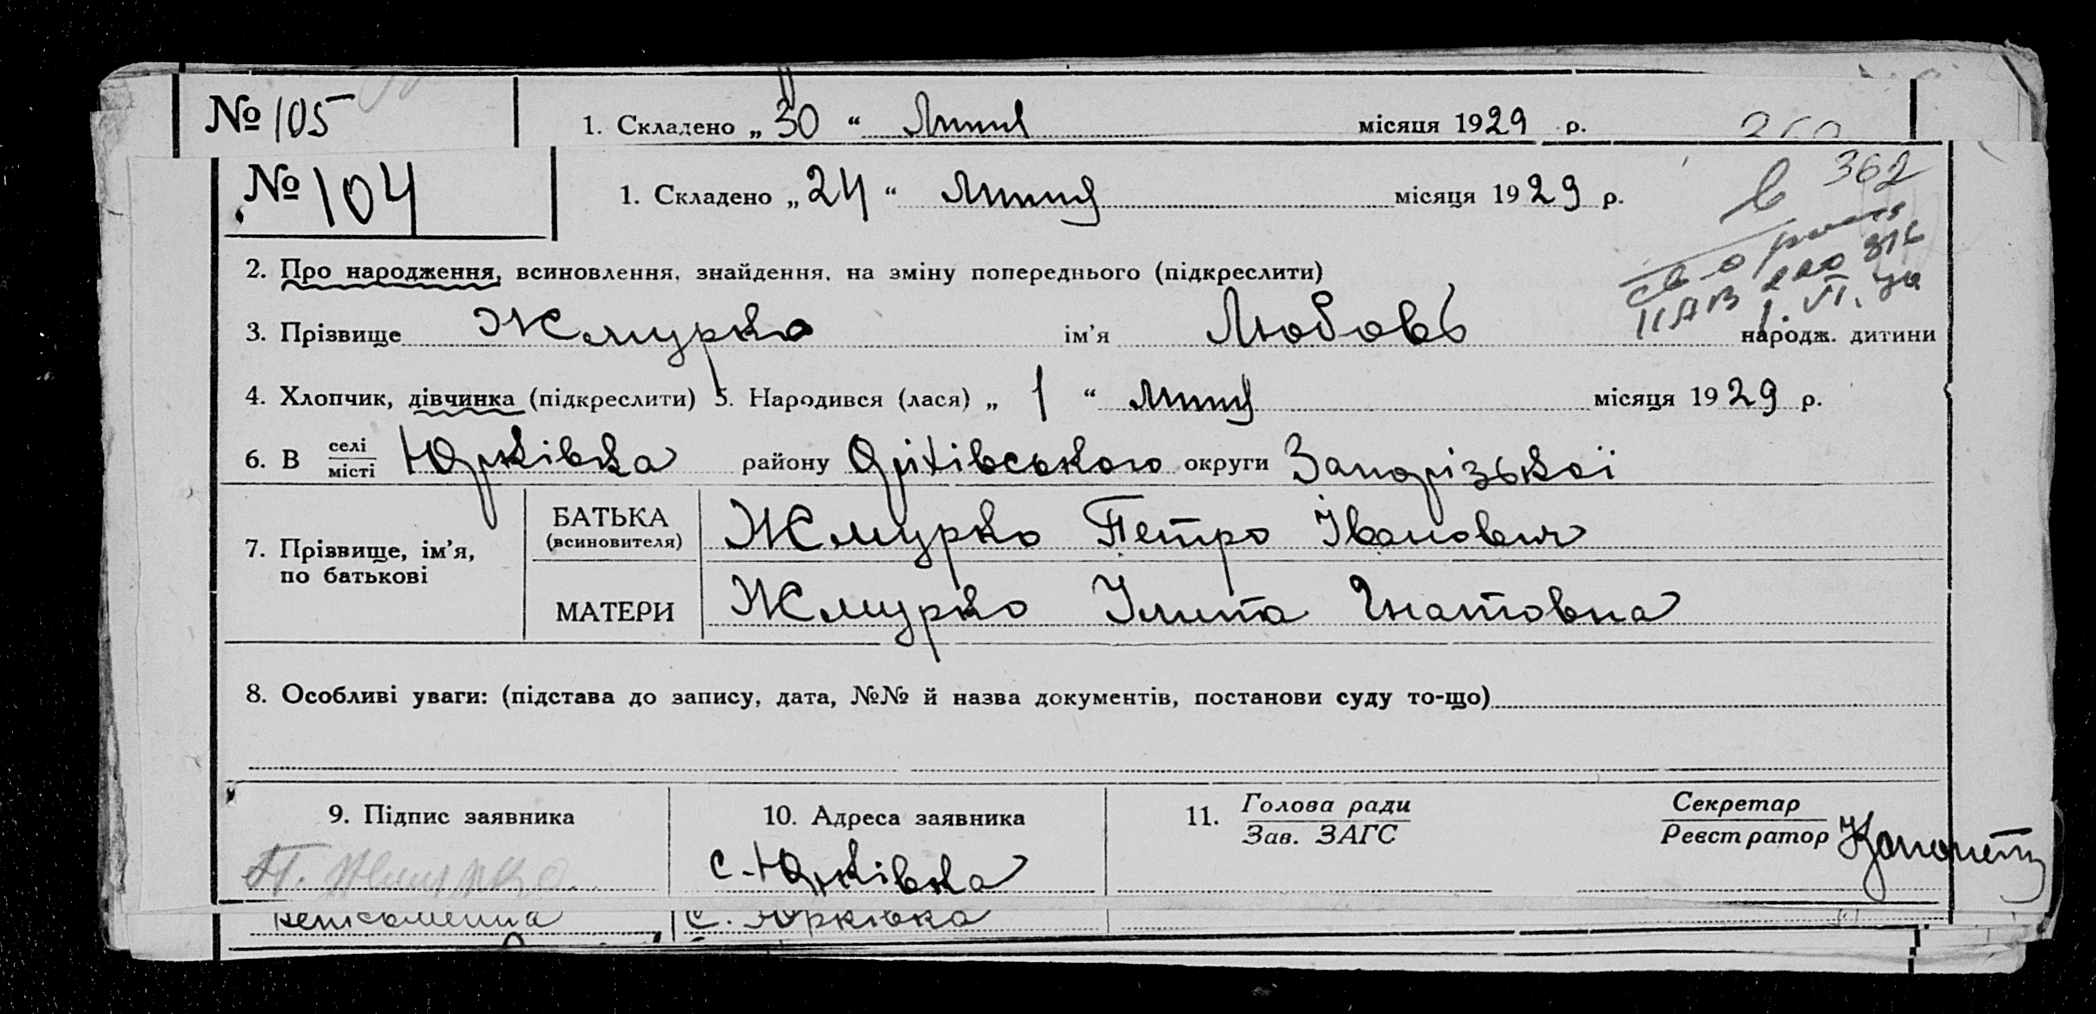 № 105 1. Складено „ 30 “ Липня місяця 1929 р.
№ 104 1. Складено „ 24 “ Липня місяця 1929 р.
362
2. Про народження, всиновлення, знайдення, на зміну попереднього (підкреслити)
3. Прізвище Жмурко ім'я Любовь народж. дитини
4. Хлопчик, дівчинка (підкреслити) 5. Народився (лася) „ 1 “ липня місяця 1929 р.
6. В селі/місті Юрківка району Оріхівського округи Запорізької
7. Прізвище, ім'я, по батькові
БАТЬКА (всиновителя) Жмурко Петро Іванович
МАТЕРИ Жмурко Улита Гнатовна
8. Особливі уваги: (підстава до запису, дата, №№ й назва документів, постанови суду то-що)
9. Підпис заявника 10. Адреса заявника 11. Голова ради / Зав. ЗАГС Секретар / Реєстратор
П. Жмурко с. Юрківка
неписьменна с. Юрківка